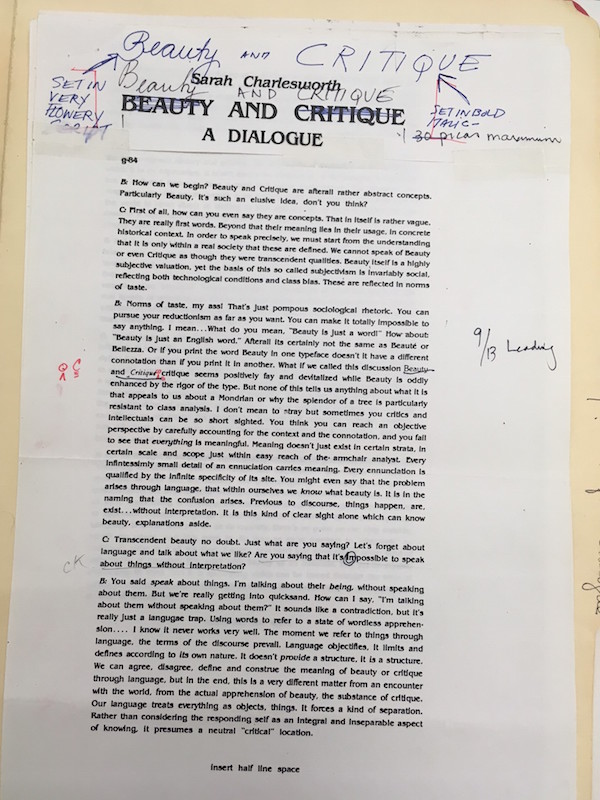 Beauty AND CRITIQUE
Beauty AND CRITIQUE
Sarah Charlesworth
SET IN
VERY
FLOWERY
SCRIPT
BEAUTY AND CRITIQUE
SET IN BOLD
ITALIC-
A DIALOGUE
30 picas maximum
g-84
B: How can we begin? Beauty and Critique are afterall rather abstract concepts.
Particularly Beauty, it's such an elusive idea, don't you think?
C: First of all, how can you even say they are concepts. That in itself is rather vague.
They are really first words. Beyond that their meaning lies in their usage, in concrete
historical context. In order to speak precisely, we must start from the understanding
that it is only within a real society that these are defined. We cannot speak of Beauty
or even Critique as though they were transcendent qualities. Beauty itself is a highly
subjective valuation, yet the basis of this so called subjectivism is invariably social,
reflecting both technological conditions and class bias. These are reflected in norms
of taste.
B: Norms of taste, my ass! That's just pompous sociological rhetoric. You can
pursue your reductionism as far as you want. You can make it totally impossible to
say anything. I mean...What do you mean, "Beauty is just a word!" How about:
"Beauty is just an English word." Afterall its certainly not the same as Beauté or
Bellezza. Or if you print the word Beauty in one typeface doesn't it have a different
connotation than if you print it in another. What if we called this discussion Beauty
and Critique? critique seems positively fay and devitalized while Beauty is oddly
enhanced by the rigor of the type. But none of this tells us anything about what it is
that appeals to us about a Mondrian or why the splendor of a tree is particularly
resistant to class analysis. I don't mean to stray but sometimes you critics and
intellectuals can be so short sighted. You think you can reach an objective
perspective by carefully accounting for the context and the connotation, and you fail
to see that everything is meaningful. Meaning doesn't just exist in certain strata, in
certain scale and scope just within easy reach of the armchair analyst. Every
infintessimly small detail of an ennuciation carries meaning. Every ennunciation is
qualified by the infinite specificity of its site. You might even say that the problem
arises through language, that within ourselves we know what beauty is. It is in the
naming that the confusion arises. Previous to discourse, things happen, are,
exist...without interpretation. It is this kind of clear sight alone which can know
beauty, explanations aside.
9/13 Leading
C: Transcendent beauty no doubt. Just what are you saying? Let's forget about
language and talk about what we like? Are you saying that it's impossible to speak
about things without interpretation?
CK
B: You said speak about things. I'm talking about their being, without speaking
about them. But we're really getting into quicksand. How can I say, "I'm talking
about them without speaking about them?" It sounds like a contradiction, but it's
really just a langugae trap. Using words to refer to a state of wordless apprehen-
sion.... I know it never works very well. The moment we refer to things through
language, the terms of the discourse prevail. Language objectifies, it limits and
defines according to its own nature. It doesn't provide a structure, it is a structure.
We can agree, disagree, define and construe the meaning of beauty or critique
through language, but in the end, this is a very different matter from an encounter
with the world, from the actual apprehension of beauty, the substance of critique.
Our language treats everything as objects, things. It forces a kind of separation.
Rather than considering the responding self as an integral and inseparable aspect
of knowing, it presumes a neutral "critical" location.
Insert half line space